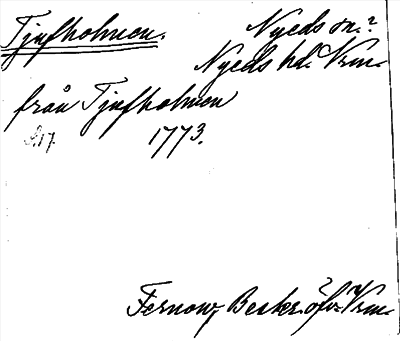 Tjufholmen. Nyeds sn.?
Nyeds hd. Vrm.
från Tjufholmen
s. 17. 1773.
Fernow, Beskr. öfv. Vrm.